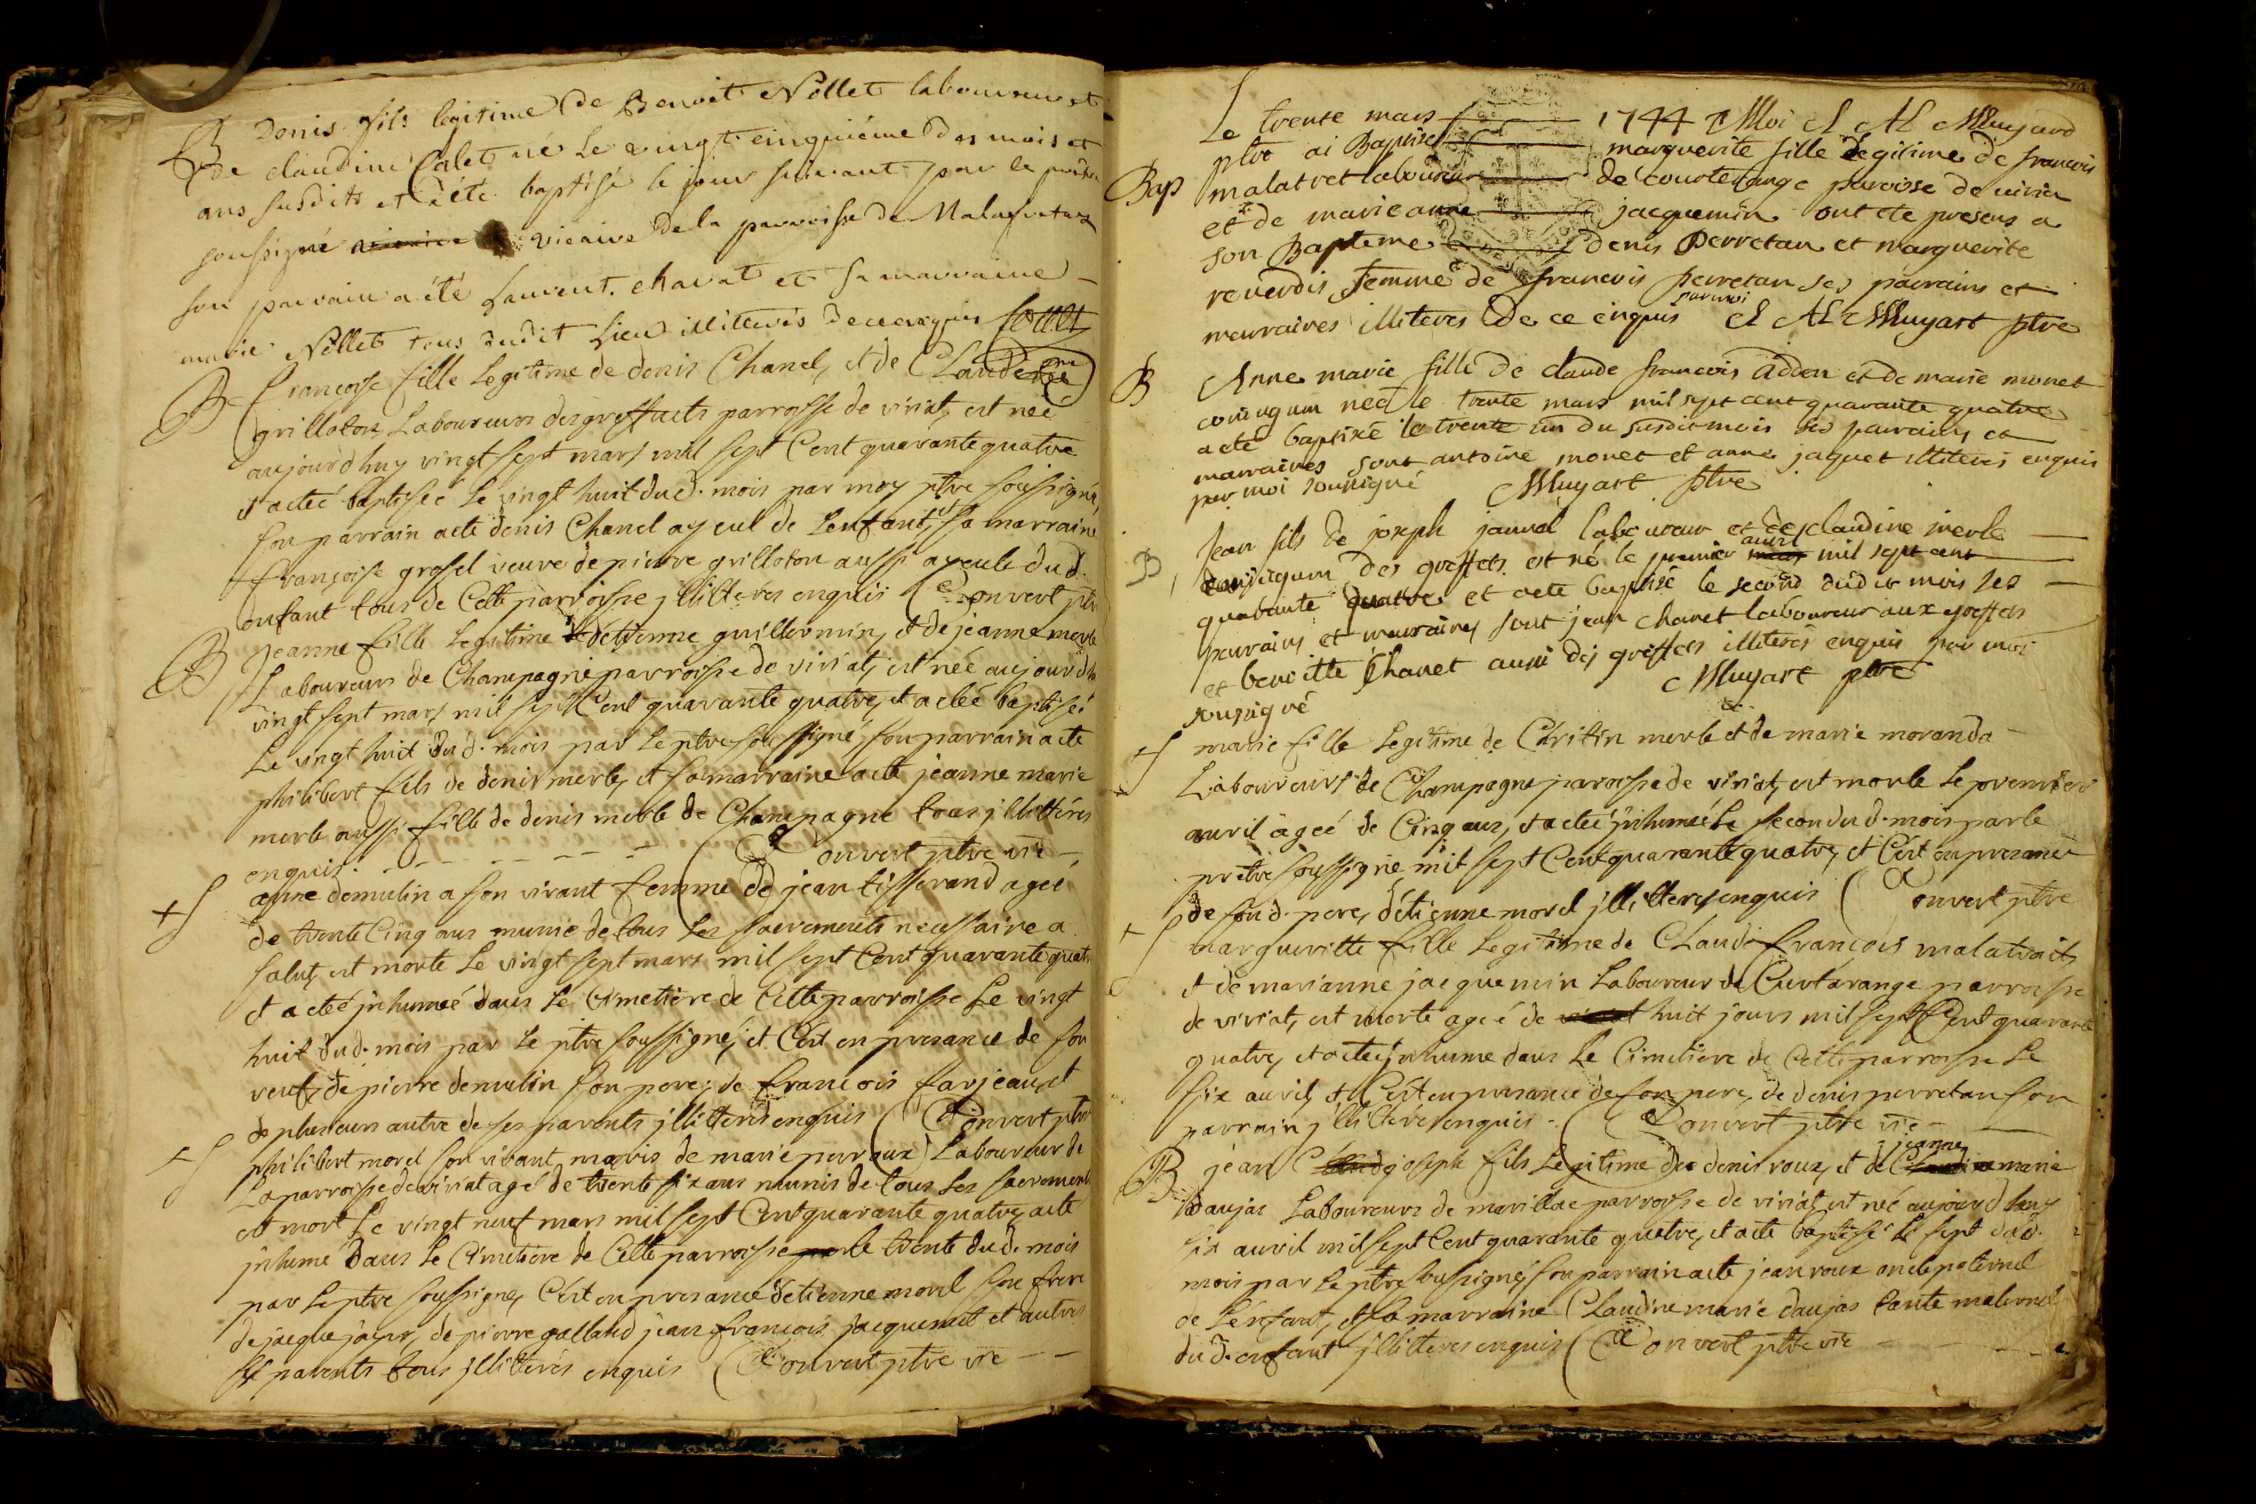 B Denis fils legitime de Benoit Nillet laboureur et
de claudine Calet né le vingt cinquiéme des mois et
ans susdits et a été baptisé le jour suivant par le prêtre
soussigné vicaire de la parroisse de Malafretaz
son parrain a été Laurent chavat et sa marraine
marie Nillet tous dudit lieu illiterés de ce enquis
B françoise fille Legitime de denis Chanel, et de Claudine
grilloton Laboureurs des greffets parroisse de viriat, est neé
aujourdhuy vingt sept mars mil sept Cent quarante quatre
et a eteé baptiseé le vingt huit dud. mois par moy ptre soussigné,
son parrain a eté denis Chanel ayeul de Lenfant, sa marraine
françoise grosel veuve de pierre grilloton aussi ayeule dud.
enfant tous de Cette parroisse jllitterés enquis Convert ptre
B Jeanne fille Legitime detienne guillermin, et de jeanne merle
Laboureurs de Champagne parroisse de viriat, est née aujourdhuy
vingt sept mars mil sept Cent quarante quatre, et a eteé baptiseé
Le vingt huit dud. mois par Le ptre soussigné, son parrain a eté
philibert fils de denis merle, et sa marraine a eté jeanne marie
merle aussi fille de denis merle de Champagne tous jllitterés
enquis. Convert ptre vic
+ S anne demulin a son vivant femme de jean tisserand ageé
de trente Cinq ans munie de tous Les sacrements necessaire a
salut, est morte Le vingt sept mars mil sept Cent quarante quatre
et a eteé jnhumeé dans Le Cimetière de Cette parroisse Le vingt
huit dud. mois par Le ptre soussigné, et C'est en presance de son
veuf, de pierre demulin son pere, de françois farjeau, et
de plusieurs autre de ses parents jllitterés enquis Convert ptre
+ S philibert morel son vivant maris de marie perraux Laboureur de
La parroisse de viriat agé de trente six ans munis de tous Les sacrements
est mort Le vingt neuf mars mil sept Cent quarante quatre, a eté
jnhumé dans Le Cimetiere de Cette parroisse le trente dud. mois
par Le ptre soussigné, C'est en presance detienne morel son frere
de jacque jayr, de pierre galland jean françois jacquemet et autres
ses parents tous jllitterés enquis Convert ptre vic
Le trente mars 1744 Moi C AL Muyard
ptre ai Baptisé marguerite fille legitime de francois
Bap malatret laboureur de courterange paroisse de viriat
et de marie anne jacquemin ont eté presens a
son Bapteme denis Perretan et marguerite
reverdis femme de francois perretan ses parrains et
marraines illiteres de ce enquis par moi C AL Muyart ptre
B Anne marie fille de claude francois adden et de marie monet
conjugum neé le trente mars mil sept cent quarante quatre
a eté baptiseé le trente un du susdit mois ses parrains et
marraines sont antoine monet et anne jaquet illiterés enquis
par moi soussigné Muyart ptre
B Jean fils de joseph jannel laboureur et de claudine merle
conjugum des greffets est né le premier avril mil sept cent
quarante quatre et a eté baptisé le second dudit mois ses
parrains et marraines sont jean chanet laboureur aux greffets
et benoitte Chanet aussi des greffets illiterés enquis par moi
soussigné Muyart ptre
+ S marie fille Legitime de Cristin merle et de marie moranda
Laboureurs de Champagne paroisse de viriat, est morte Le premier
avril ageé de Cinq ans, et a eteé jnhumeé Le second dud. mois par le
prêtre soussigné mil sept Cent quarante quatre, et C'est en presance
de son d. pere, detienne morel jllitteres enquis Convert ptre
+ S margueritte fille Legitime de Claude françois malatrait
et de marianne jacquemin Laboureur de Curtarange parroisse
de viriat, est morte ageé de huit jours mil sept Cent quarante
quatre, et a eteé jnhumé dans Le Cimetiere de Cette parroisse Le
six avril, et C'est en presance de son pere, de denis perretan son
parrain jllitteré enquis Convert ptre vic
B jean joseph fils Legitime de denis roux, et de jeanne marie
daujas Laboureurs de marillac parroisse de viriat, est né aujourdhuy
six avril mil sept Cent quarante quatre, et a eté baptisé Le sept dud.
mois par Le ptre soussigné, son parrain a eté jean roux oncle paternel
de Lenfant, et sa marraine Claudine marie daujas tante maternel
dud. enfant jllitteres enquis Convert ptre vic